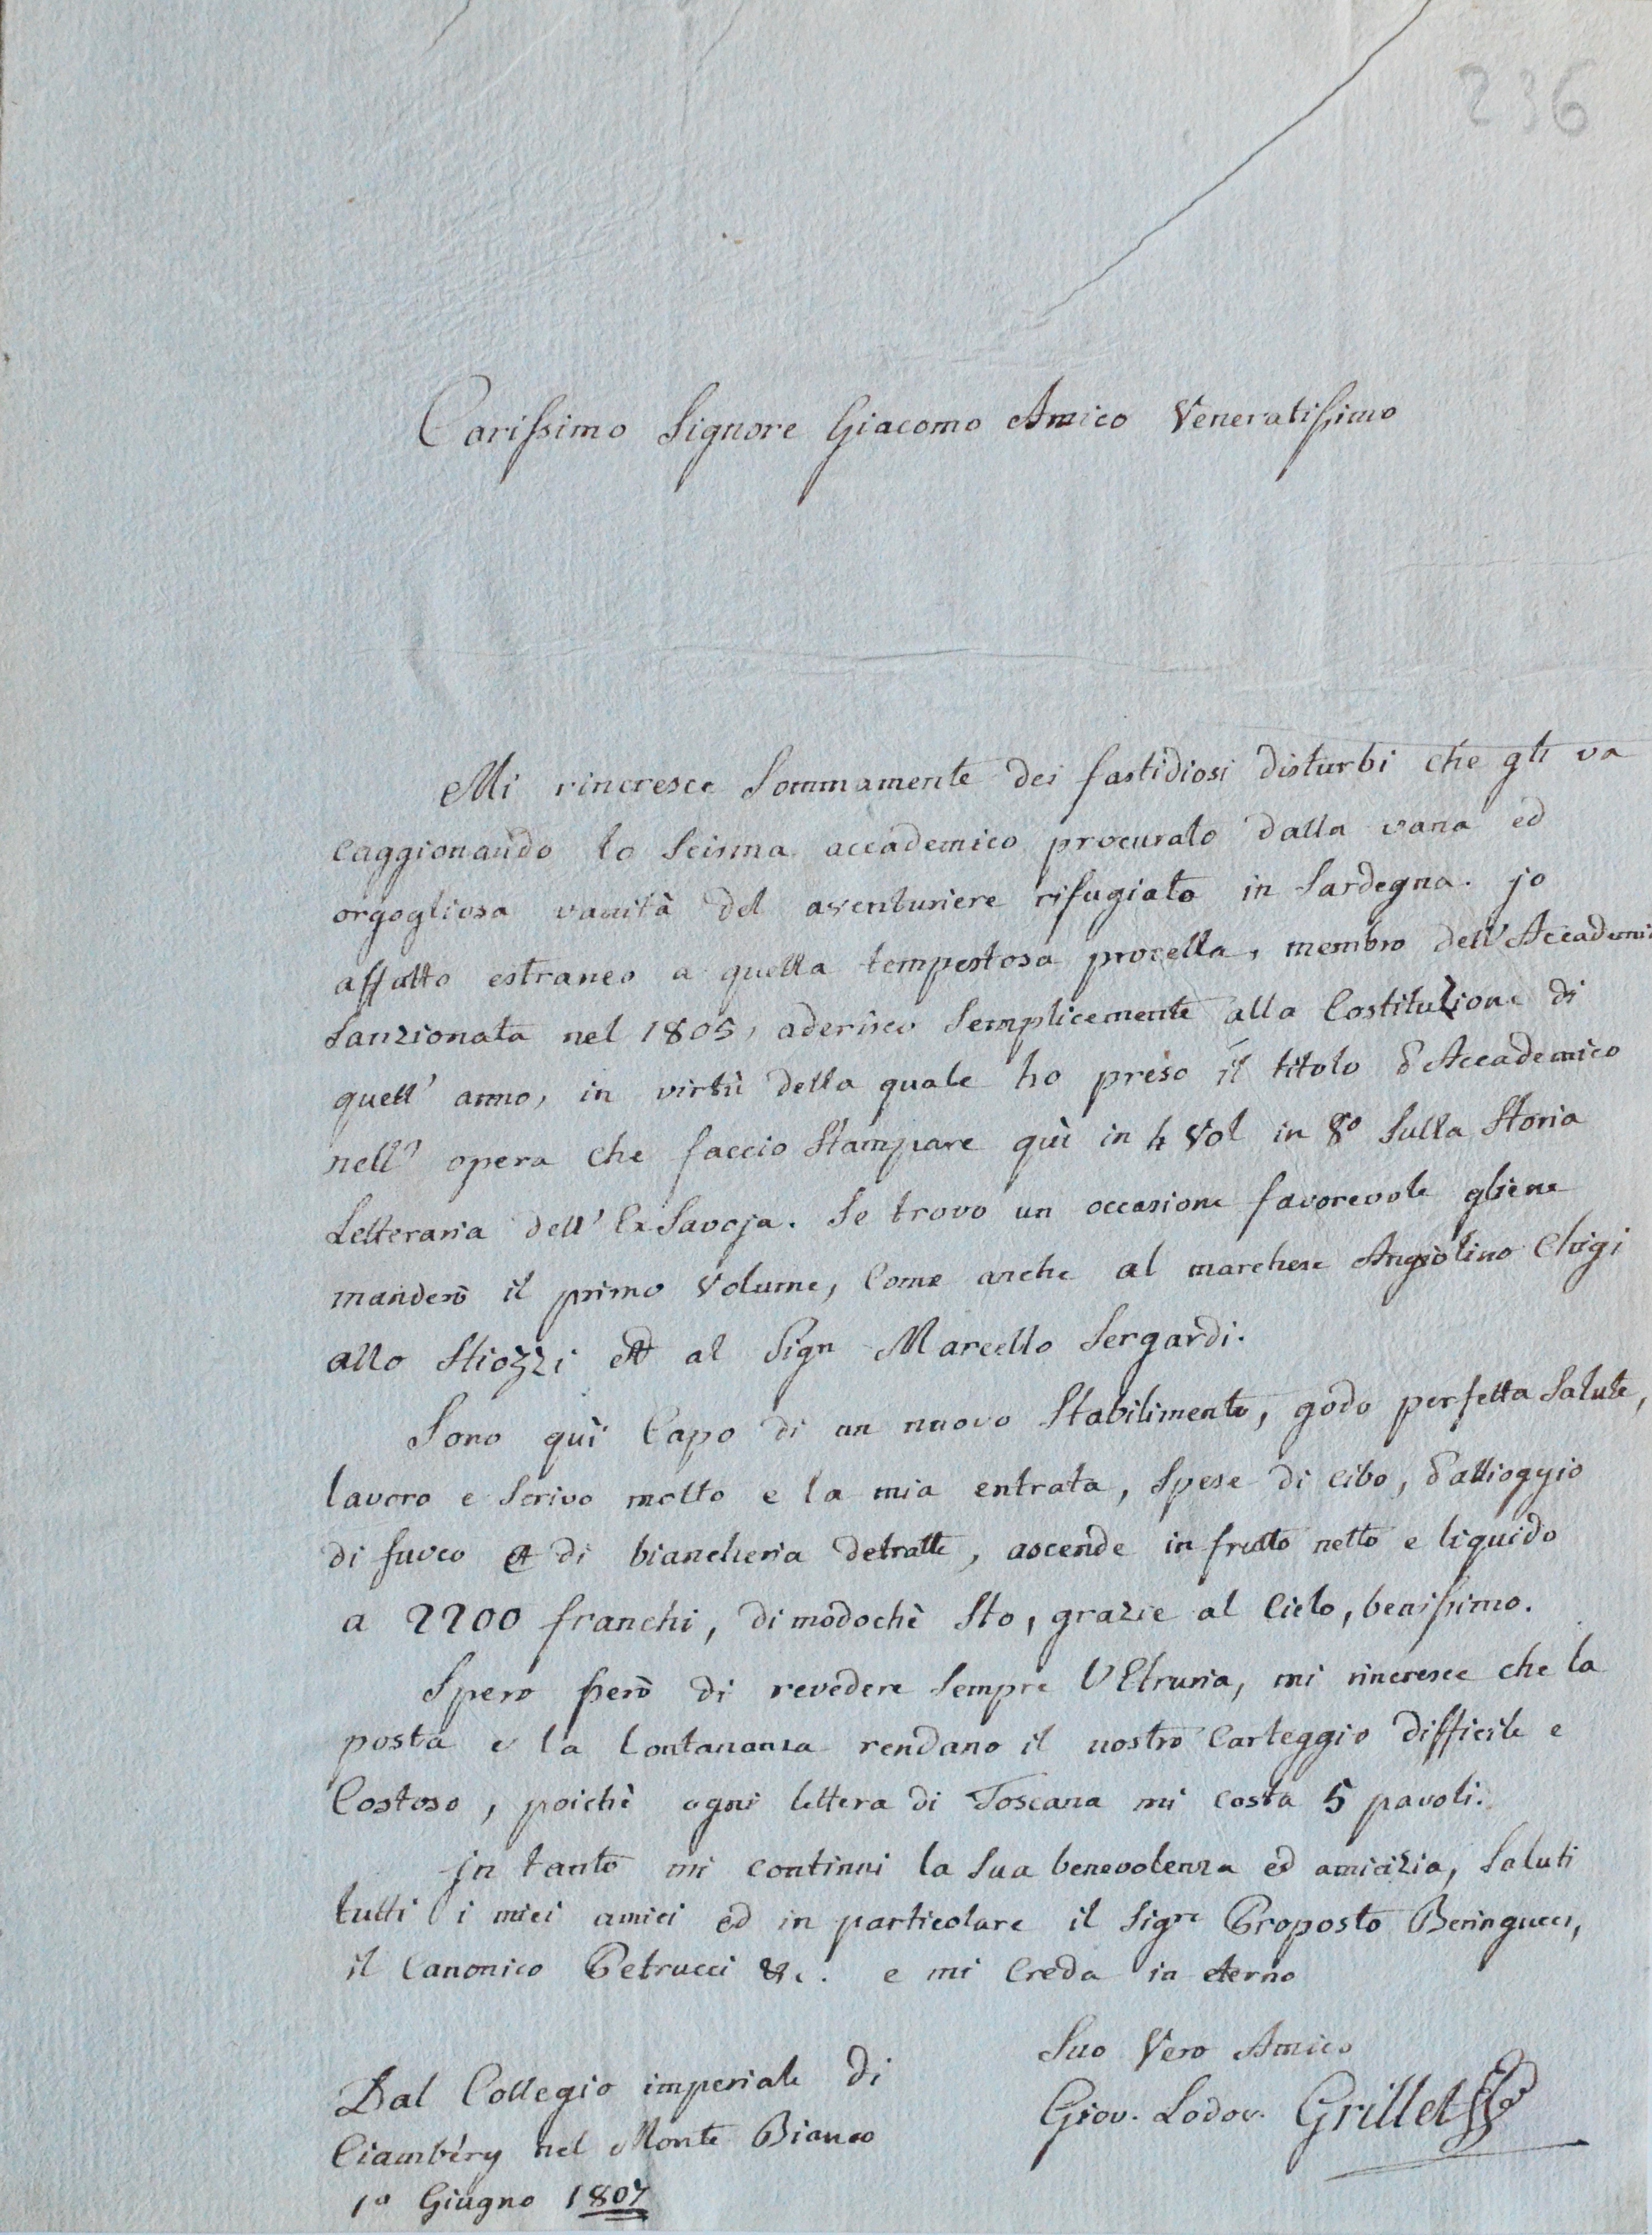 236
Carissimo Signore Giacomo Amico Veneratissimo
Mi rincresce Sommamente dei fastidiosi disturbi che gli va
caggionando lo Scisma accademico procurato dalla vana ed
orgogliosa vanità del aventuriere rifugiato in Sardegna. jo
affatto estraneo a quella tempestosa procella, membro dell'Accademi
Sanzionata nel 1805, aderisco Semplicemente alla Costituzione di
quell' anno, in virtù della quale ho preso il titolo d'Accademico
nell' opera che faccio Stampare quì in 4 Vol in 8º Sulla Storia
Letteraria dell' Ex Savoja. Se trovo un occasione favorevole gliene
manderò il primo Volume, Come anche al marchese Angiolino Chigi
allo Stiozzi et al Sign Marcello Sergardi.
Sono quì Capo di un nuovo Stabilimento, godo perfetta Salute,
lavoro e Scrivo molto e la mia entrata, Spese di Cibo, d'allioggio
di fuoco et di biancheria detratte, ascende in frutto netto e liquido
a 2200 franchi, di modochè Sto, grazie al Cielo, benissimo.
Spero però di revedere Sempre l'Etruria, mi rincresce che la
posta e la Lontananza rendano il nostro Carteggio difficile e
Costoso, poichè ogni lettera di Toscana mi costa 5 pavoli.
jn tanto mi continui la Sua benevolenza ed amicizia, Saluti
tutti i miei amici ed in particolare il Sigre Proposto Beringucci,
il Canonico Petrucci &c. e mi Creda in eterno
Suo Vero Amico
Giov. Lodov. Grillet
Dal Collegio imperiale di
Ciambéry nel Monte Bianco
1º Giugno 1807